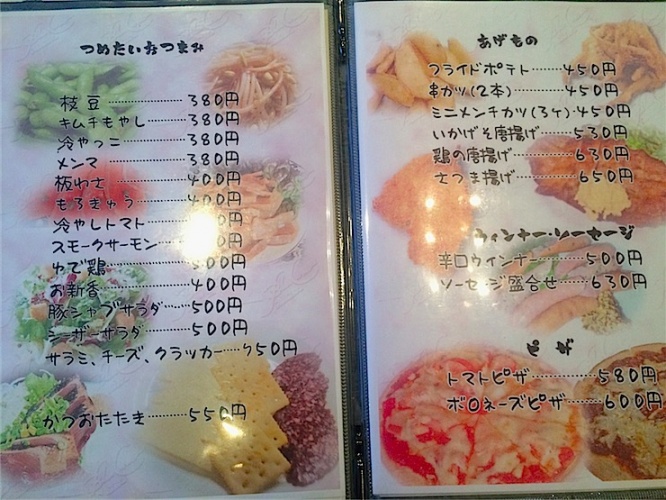 つめたいおつまみ
枝豆…………380円
キムチもやし………380円
冷やっこ…………380円
メンマ…………380円
板わさ…………400円
もろきゅう………400円
冷やしトマト
スモークサーモン
ゆで鶏…………500円
お新香…………400円
豚シャブサラダ……500円
シーザーサラダ……500円
サラミ、チーズ、クラッカー……750円
かつおたたき………550円
あげもの
フライドポテト……450円
串カツ(2本)………450円
ミニメンチカツ(3ヶ)…450円
いかげそ唐揚げ……530円
鶏の唐揚げ………630円
さつま揚げ………650円
ウィンナー・ソーセージ
辛口ウインナー……500円
ソーセージ盛合せ……630円
ピザ
トマトピザ…………580円
ボロネーズピザ………600円